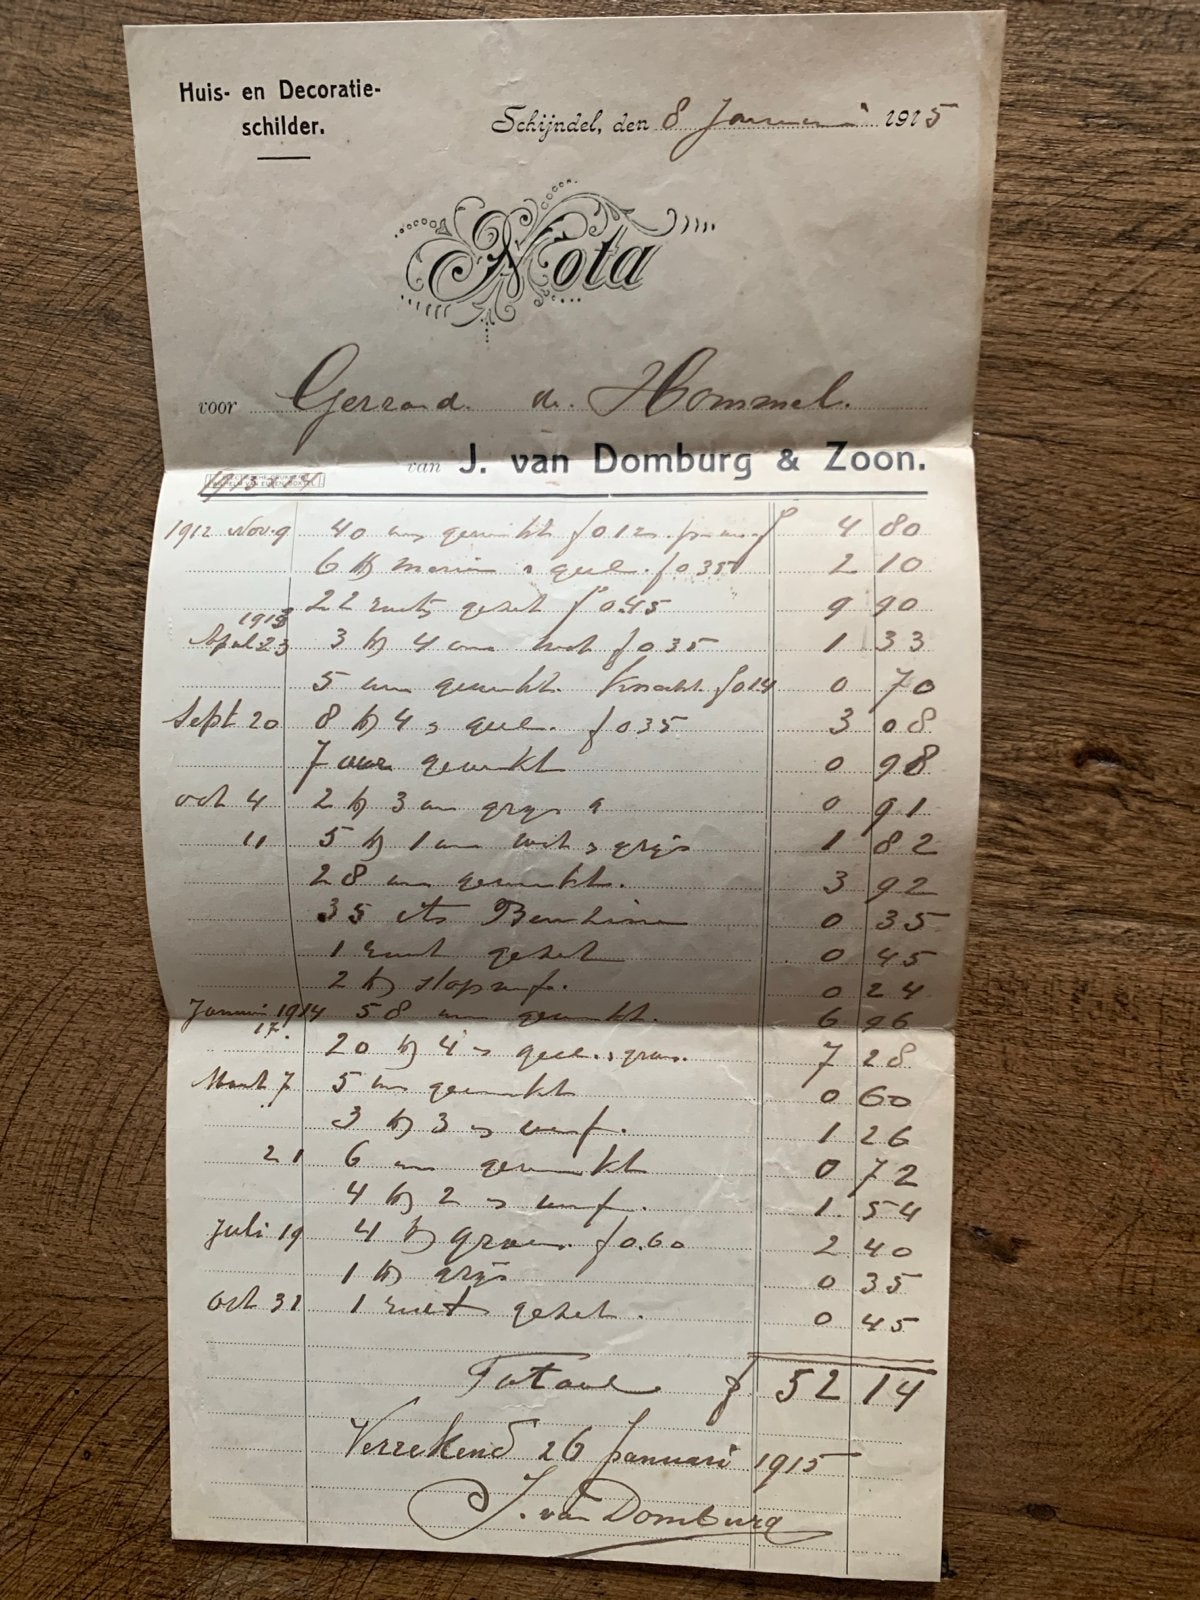 Huis- en Decoratie-
schilder.
Schijndel, den 8 Januari 1915
Nota
voor Gerrard de Hommel.
van J. van Domburg & Zoon.
1912 Nov 9 40 uur gewerkt f 0 12 f 4 80
6 geel f 0 35 2 10
22 ruits gezet f 0.45 9 90
1913
April 23 3 4 f 0 35 1 33
5 uur gewerkt Knecht f 0 14 0 70
Sept 20 8 4 geel f 0 35 3 08
7 uur gewerkt 0 98
oct 4 2 3 grijs 0 91
11 5 1 wit grijs 1 82
28 uur gewerkt. 3 92
35 cts 0 35
1 ruit gezet 0 45
2 stopverf. 0 24
Januari 1914 58 uur gewerkt. 6 96
17.
20 4 geel 7 28
Maart 7 5 uur gewerkt 0 60
3 3 verf. 1 26
21 6 uur gewerkt 0 72
4 2 verf. 1. 54
Juli 19 4 groen. f 0.60 2 40
1 grijs 0 35
oct 31 1 ruit gezet. 0 45
Totaal f 52 14
Verrekend 26 Januari 1915
J. van Domburg